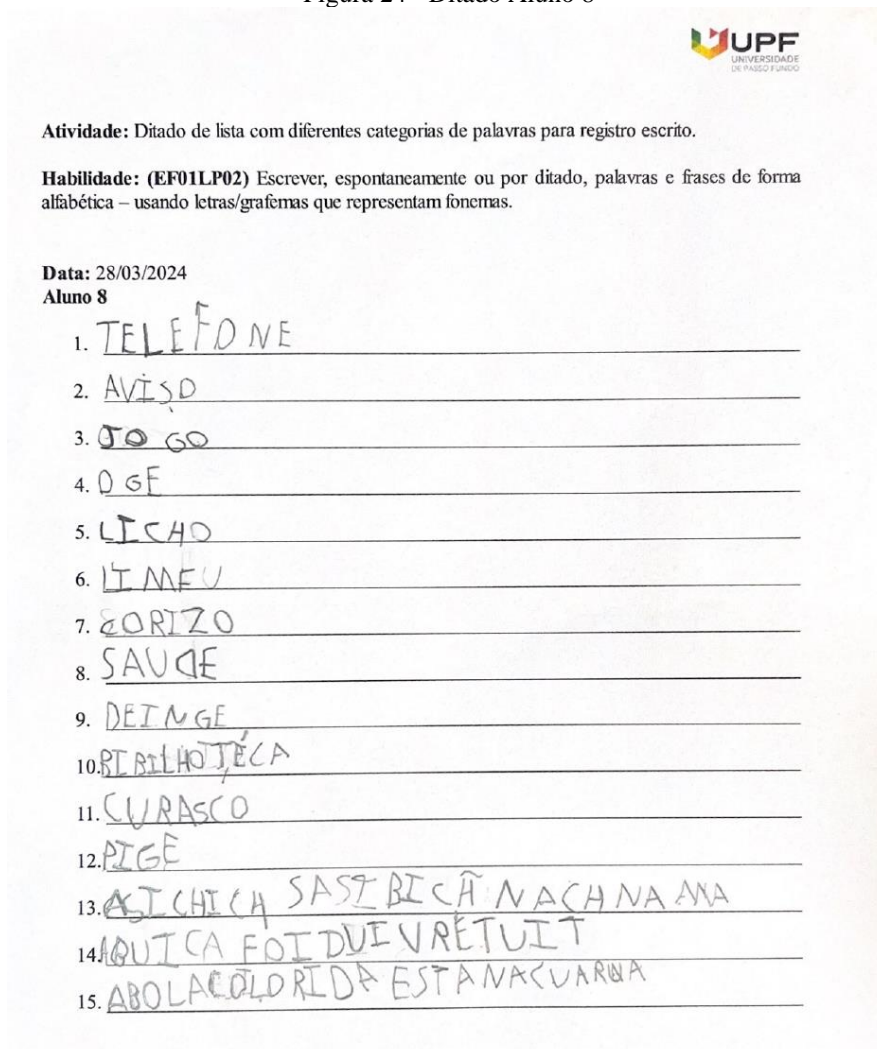 Figura 24 - Ditado Aluno 8
UPF
UNIVERSIDADE
DE PASSO FUNDO
Atividade: Ditado de lista com diferentes categorias de palavras para registro escrito.
Habilidade: (EF01LP02) Escrever, espontaneamente ou por ditado, palavras e frases de forma
alfabética – usando letras/grafemas que representam fonemas.
Data: 28/03/2024
Aluno 8
1. TELEFONE
2. AVISO
3. JOGO
4. OGE
5. LICHO
6. LIMEU
7. CORIZO
8. SAUDE
9. DEINGE
10. BIBILHOTÉCA
11. CURASCO
12. PIGE
13. SASI BICÃ NACH NA
14. FOI
15. ABOLACOLORIDA ESTA NACUARUA